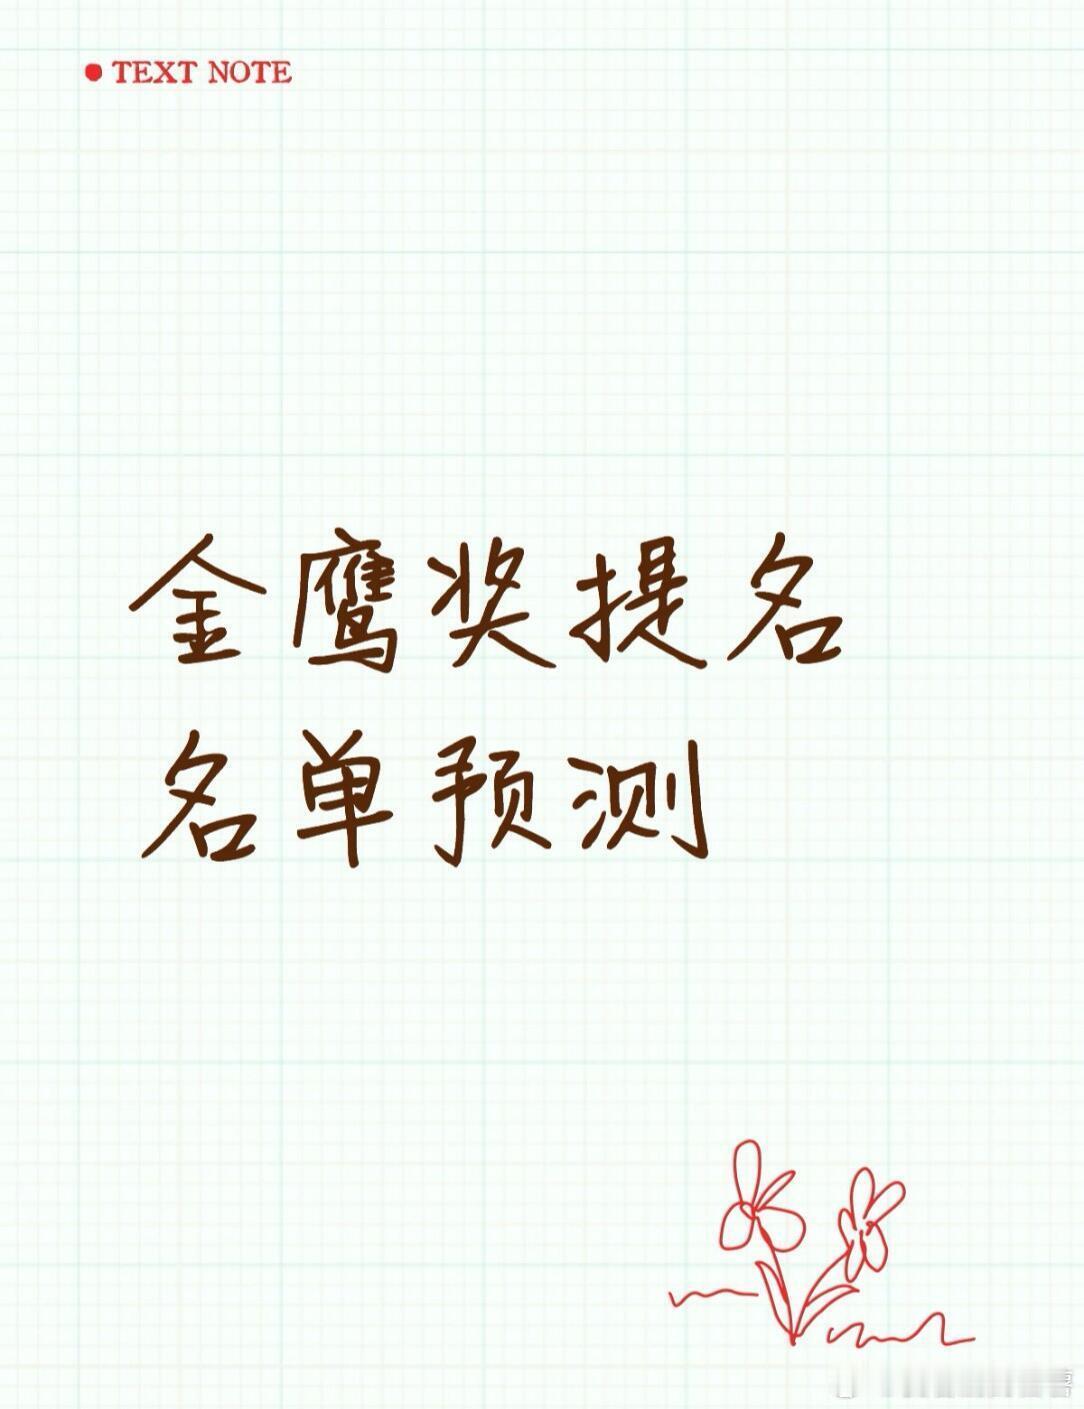 TEXT NOTE
金鹰奖提名
名单预测